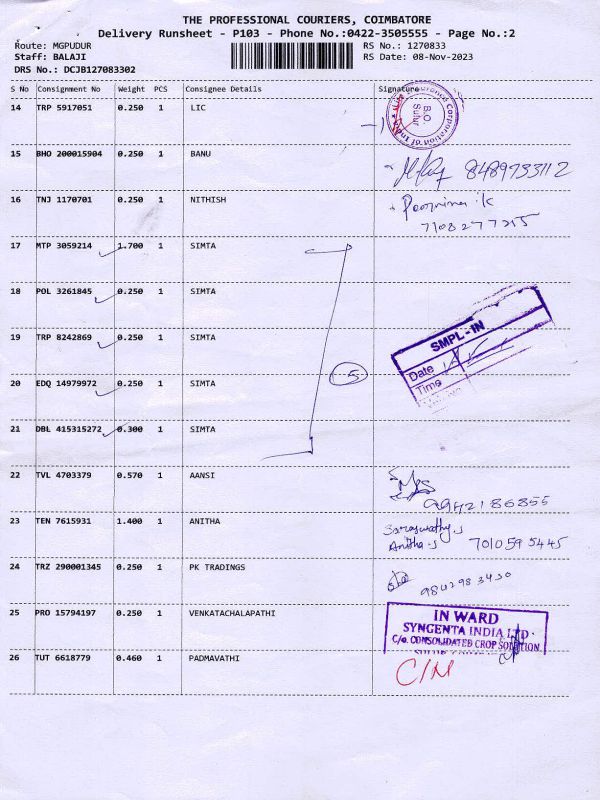 THE PROFESSIONAL COURIERS, COIMBATORE
Delivery Runsheet - P103 - Phone No.:0422-3505555 - Page No.:2
Route: MGPUDUR RS No.: 1270833
Staff: BALAJI RS Date: 08-Nov-2023
DRS No.: DCJB127083302
S No Consignment No Weight PCS Consignee Details Signature
14 TRP 5917051 0.250 1 LIC
B.O.
Sulur
15 BHO 200015904 0.250 1 BANU
8489733112
16 TNJ 1170701 0.250 1 NITHISH
Poornima k
7108277215
17 MTP 3059214 1.700 1 SIMTA
18 POL 3261845 0.250 1 SIMTA
19 TRP 8242869 0.250 1 SIMTA
SMPL-IN
Date
Time
20 EDQ 14979972 0.250 1 SIMTA
5
21 DBL 415315272 0.300 1 SIMTA
22 TVL 4703379 0.570 1 AANSI
9942186855
23 TEN 7615931 1.400 1 ANITHA
Saraswathy.s
Anitha.s 7010595445
24 TRZ 290001345 0.250 1 PK TRADINGS
9842983430
25 PRO 15794197 0.250 1 VENKATACHALAPATHI
IN WARD
SYNGENTA INDIA LTD
C/o. CONSOLIDATED CROP SOLUTION
26 TUT 6618779 0.460 1 PADMAVATHI
C/M